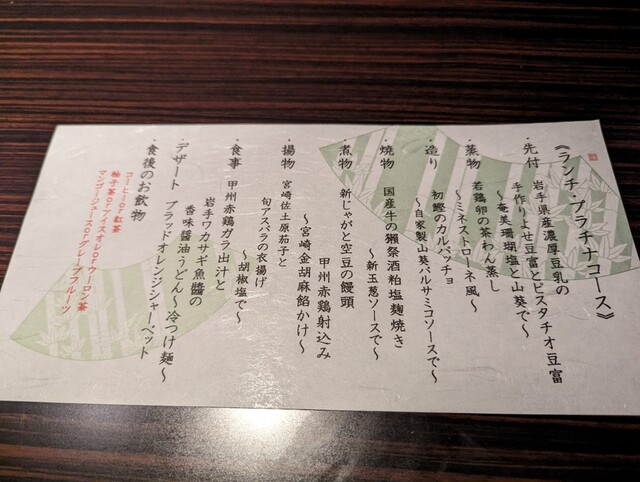 《ランチ・プラチナコース》
・先付　岩手県産濃厚豆乳の
手作りよせ豆富とピスタチオ豆富
～奄美珊瑚塩と山葵で～
・蒸物　若鶏卵の茶わん蒸し
～ミネストローネ風～
・造り　初鰹のカルパッチョ
～自家製山葵バルサミコソースで～
・焼物　国産牛の獺祭酒粕塩麹焼き
～新玉葱ソースで～
・煮物　新じゃがと空豆の饅頭
甲州赤鶏射込み
～宮崎金胡麻餡かけ～
・揚物　宮崎佐土原茄子と
旬アスパラの衣揚げ
～胡椒塩で～
・食事　甲州赤鶏ガラ出汁と
岩手ワカサギ魚醬の
香味醤油うどん～冷つけ麺～
・デザート　ブラッドオレンジシャーベット
・食後のお飲物
コーヒーor紅茶
柚子茶orアイスオレorウーロン茶
マンゴージュースorグレープフルーツ